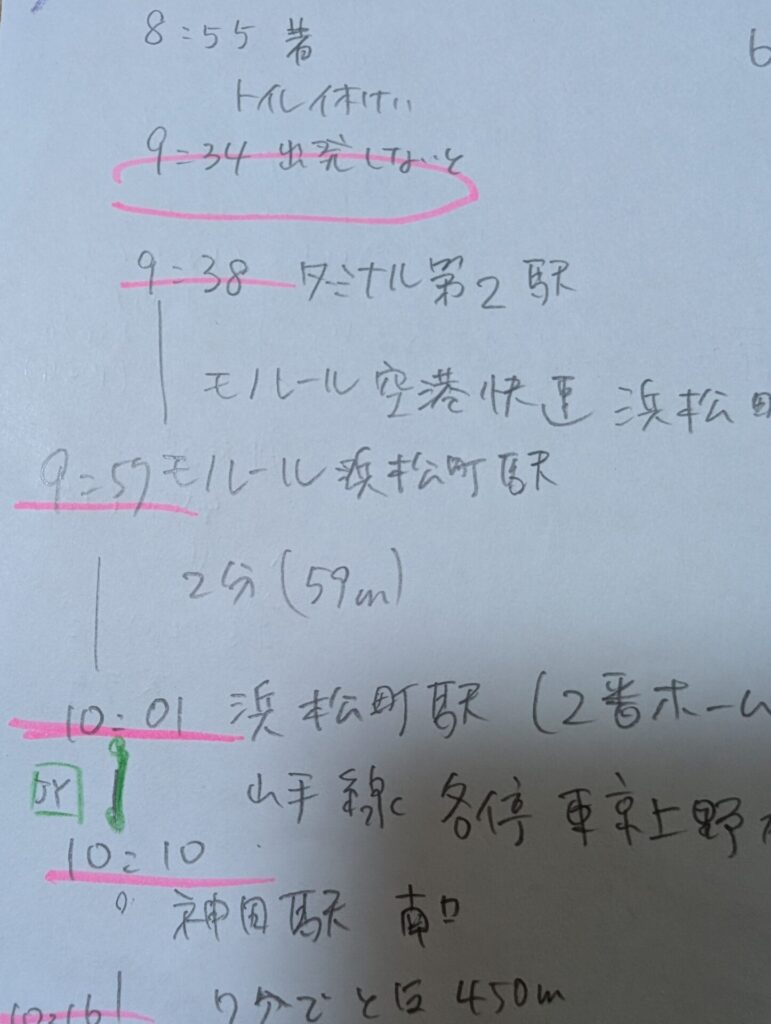 8:55 着
トイレ休けい
9:34 出発しないと
9:38 タミナル第2駅
モルール 空港快速 浜松町
9:57 モルール浜松町駅
2分(59m)
10:01 浜松町駅 (2番ホーム
JY 山手線 各停 東京上野
10:10
神田駅 南口
10:16 7分でと歩 450m